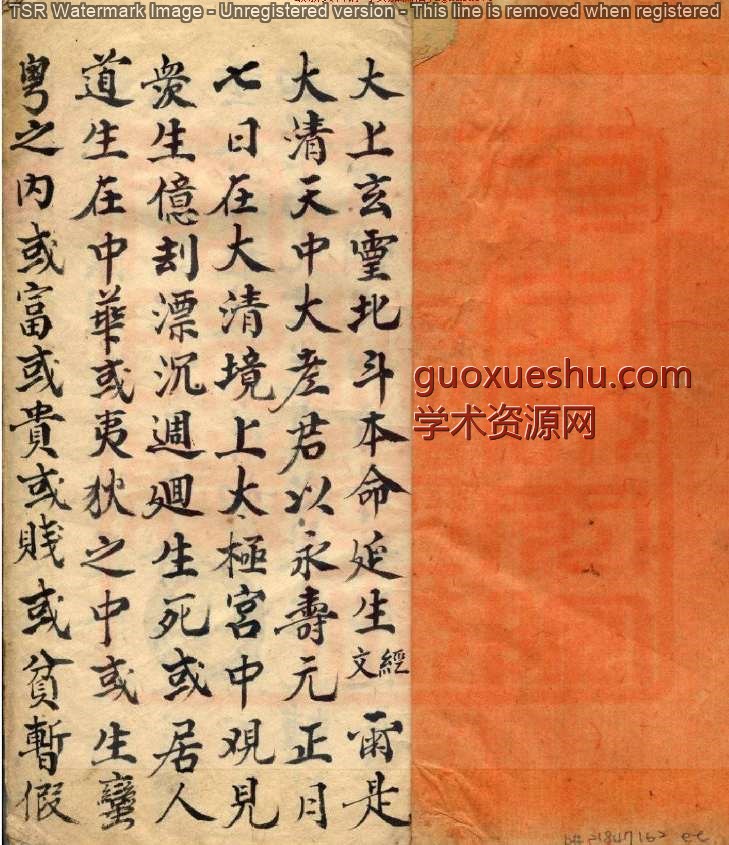 TSR Watermark Image - Unregistered version - This line is removed when registered
大上玄霊北斗本命延生經文 爾是
大清天中大老君以永壽元正月
七日在大清境上太極宮中观見
衆生億刦漂沉週廻生死或居人
道生在中華或夷狄之中或生蠻
粤之内或富或貴或賎或貧暫假
guoxueshu.com
学术资源网